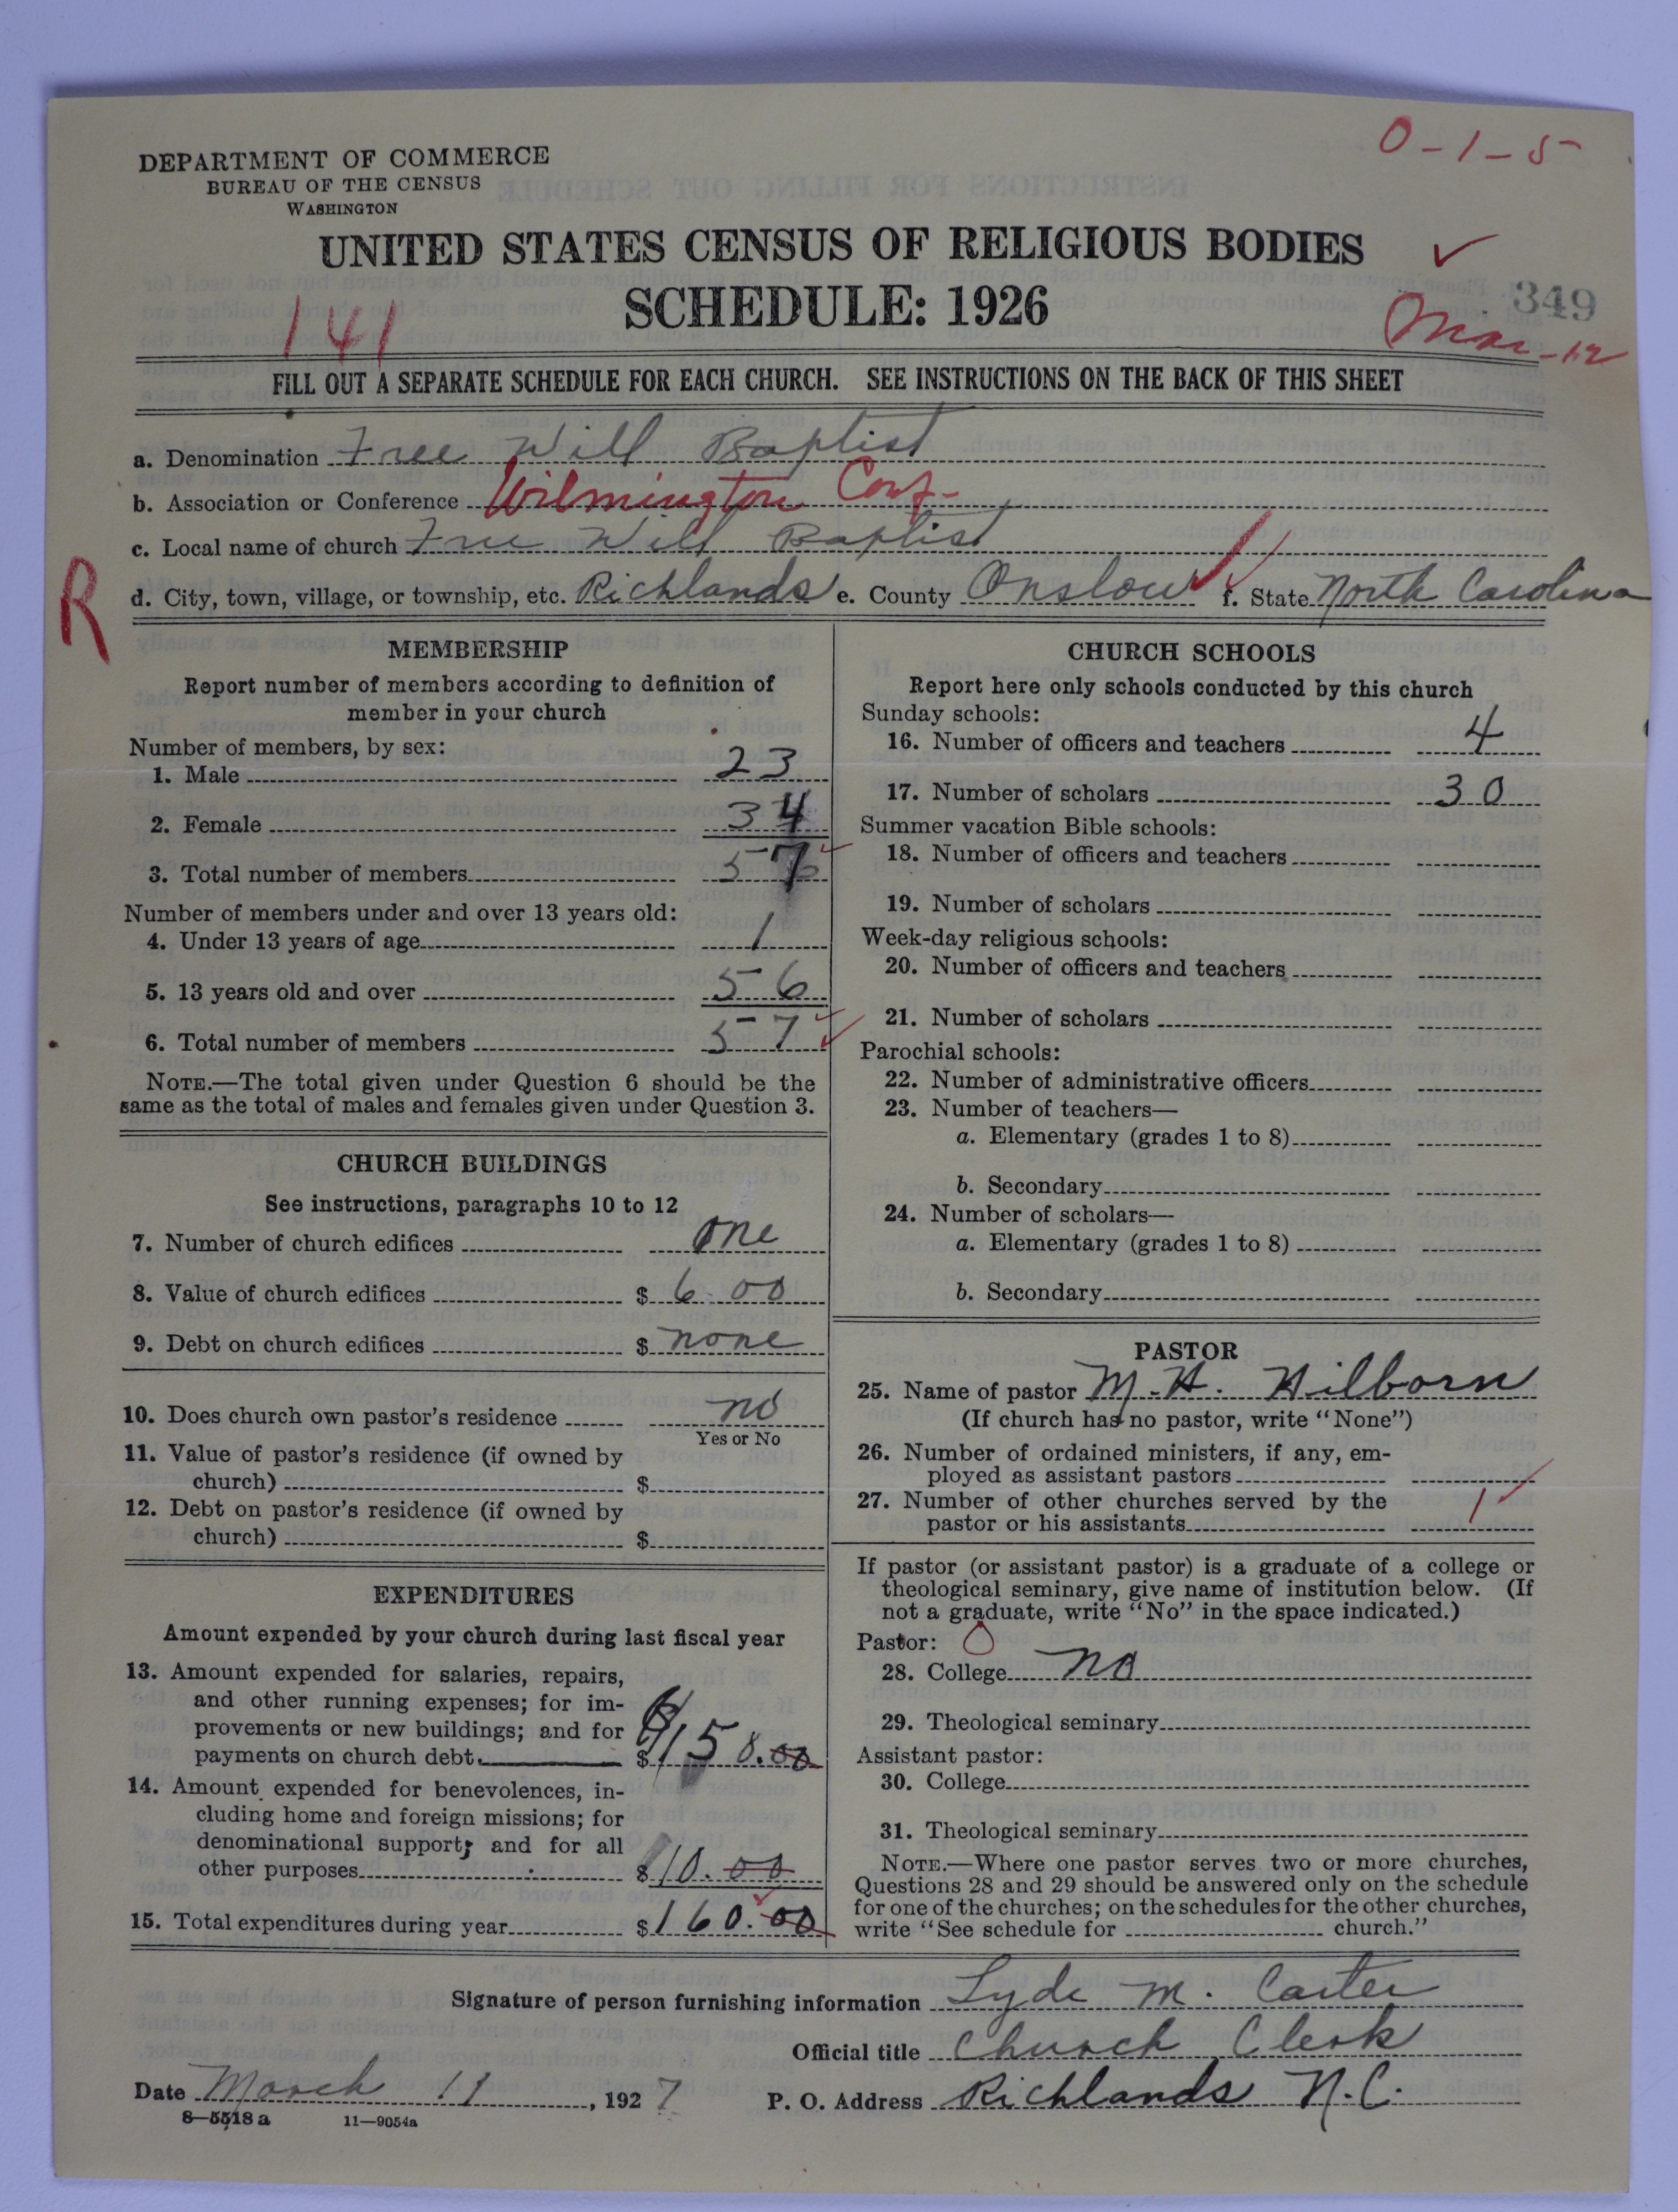 0-1-5
DEPARTMENT OF COMMERCE
BUREAU OF THE CENSUS
WASHINGTON
UNITED STATES CENSUS OF RELIGIOUS BODIES
SCHEDULE: 1926
349
141
Mar-12
FILL OUT A SEPARATE SCHEDULE FOR EACH CHURCH. SEE INSTRUCTIONS ON THE BACK OF THIS SHEET
a. Denomination Free Will Baptist
b. Association or Conference Wilmington Conf-
c. Local name of church Free Will Baptist
R
d. City, town, village, or township, etc. Richlands e. County Onslow f. State North Carolina
MEMBERSHIP
Report number of members according to definition of
member in your church
Number of members, by sex:
1. Male 23
2. Female 34
3. Total number of members 57
Number of members under and over 13 years old:
4. Under 13 years of age 1
5. 13 years old and over 56
6. Total number of members 57
NOTE.—The total given under Question 6 should be the
same as the total of males and females given under Question 3.
CHURCH BUILDINGS
See instructions, paragraphs 10 to 12
7. Number of church edifices one
8. Value of church edifices $ 6 00
9. Debt on church edifices $ none
10. Does church own pastor's residence no
Yes or No
11. Value of pastor's residence (if owned by
church) $
12. Debt on pastor's residence (if owned by
church) $
EXPENDITURES
Amount expended by your church during last fiscal year
13. Amount expended for salaries, repairs,
and other running expenses; for im-
provements or new buildings; and for
payments on church debt $
14. Amount expended for benevolences, in-
cluding home and foreign missions; for
denominational support; and for all
other purposes $10.00
15. Total expenditures during year $160.00
CHURCH SCHOOLS
Report here only schools conducted by this church
Sunday schools:
16. Number of officers and teachers 4
17. Number of scholars 30
Summer vacation Bible schools:
18. Number of officers and teachers
19. Number of scholars
Week-day religious schools:
20. Number of officers and teachers
21. Number of scholars
Parochial schools:
22. Number of administrative officers
23. Number of teachers—
a. Elementary (grades 1 to 8)
b. Secondary
24. Number of scholars—
a. Elementary (grades 1 to 8)
b. Secondary
PASTOR
25. Name of pastor M. H. Hilborn
(If church has no pastor, write "None")
26. Number of ordained ministers, if any, em-
ployed as assistant pastors
27. Number of other churches served by the
pastor or his assistants 1
If pastor (or assistant pastor) is a graduate of a college or
theological seminary, give name of institution below. (If
not a graduate, write "No" in the space indicated.)
Pastor: 0
28. College no
29. Theological seminary
Assistant pastor:
30. College
31. Theological seminary
NOTE.—Where one pastor serves two or more churches,
Questions 28 and 29 should be answered only on the schedule
for one of the churches; on the schedules for the other churches,
write "See schedule for church."
Signature of person furnishing information Lyde M. Carter
Official title Church Clerk
Date March 11, 1927
P. O. Address Richlands N.C.
8—5518 a 11—9054a